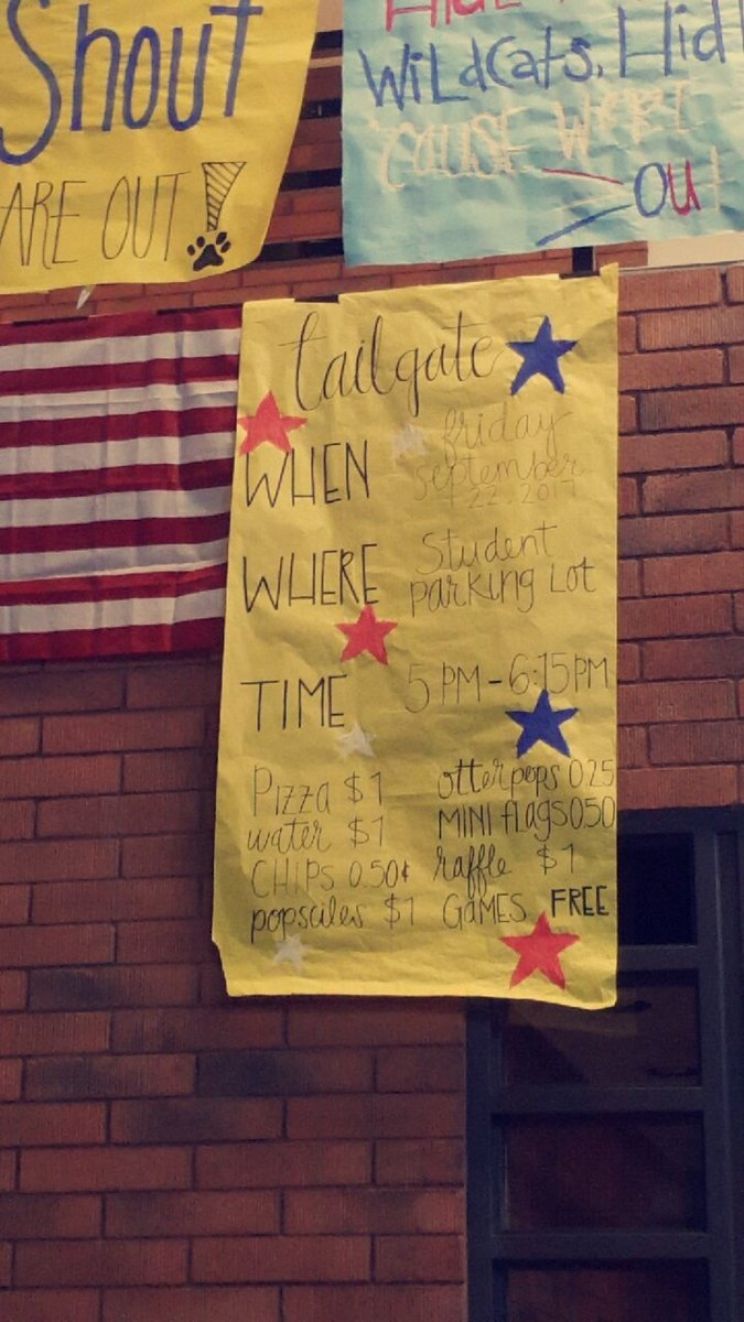 Shout
ARE OUT!
WildCats, Hid
'CAUSE WE'RE
OUt
tailgate
WHEN friday
september
22. 2017
WHERE Student
parking Lot
TIME 5 PM - 6:15PM
Pizza $1
water $1
CHIPS 0.50¢
popsciles $1
otterpops 0.25
MINI flags 0.50
raffle $1
GaMES FREE